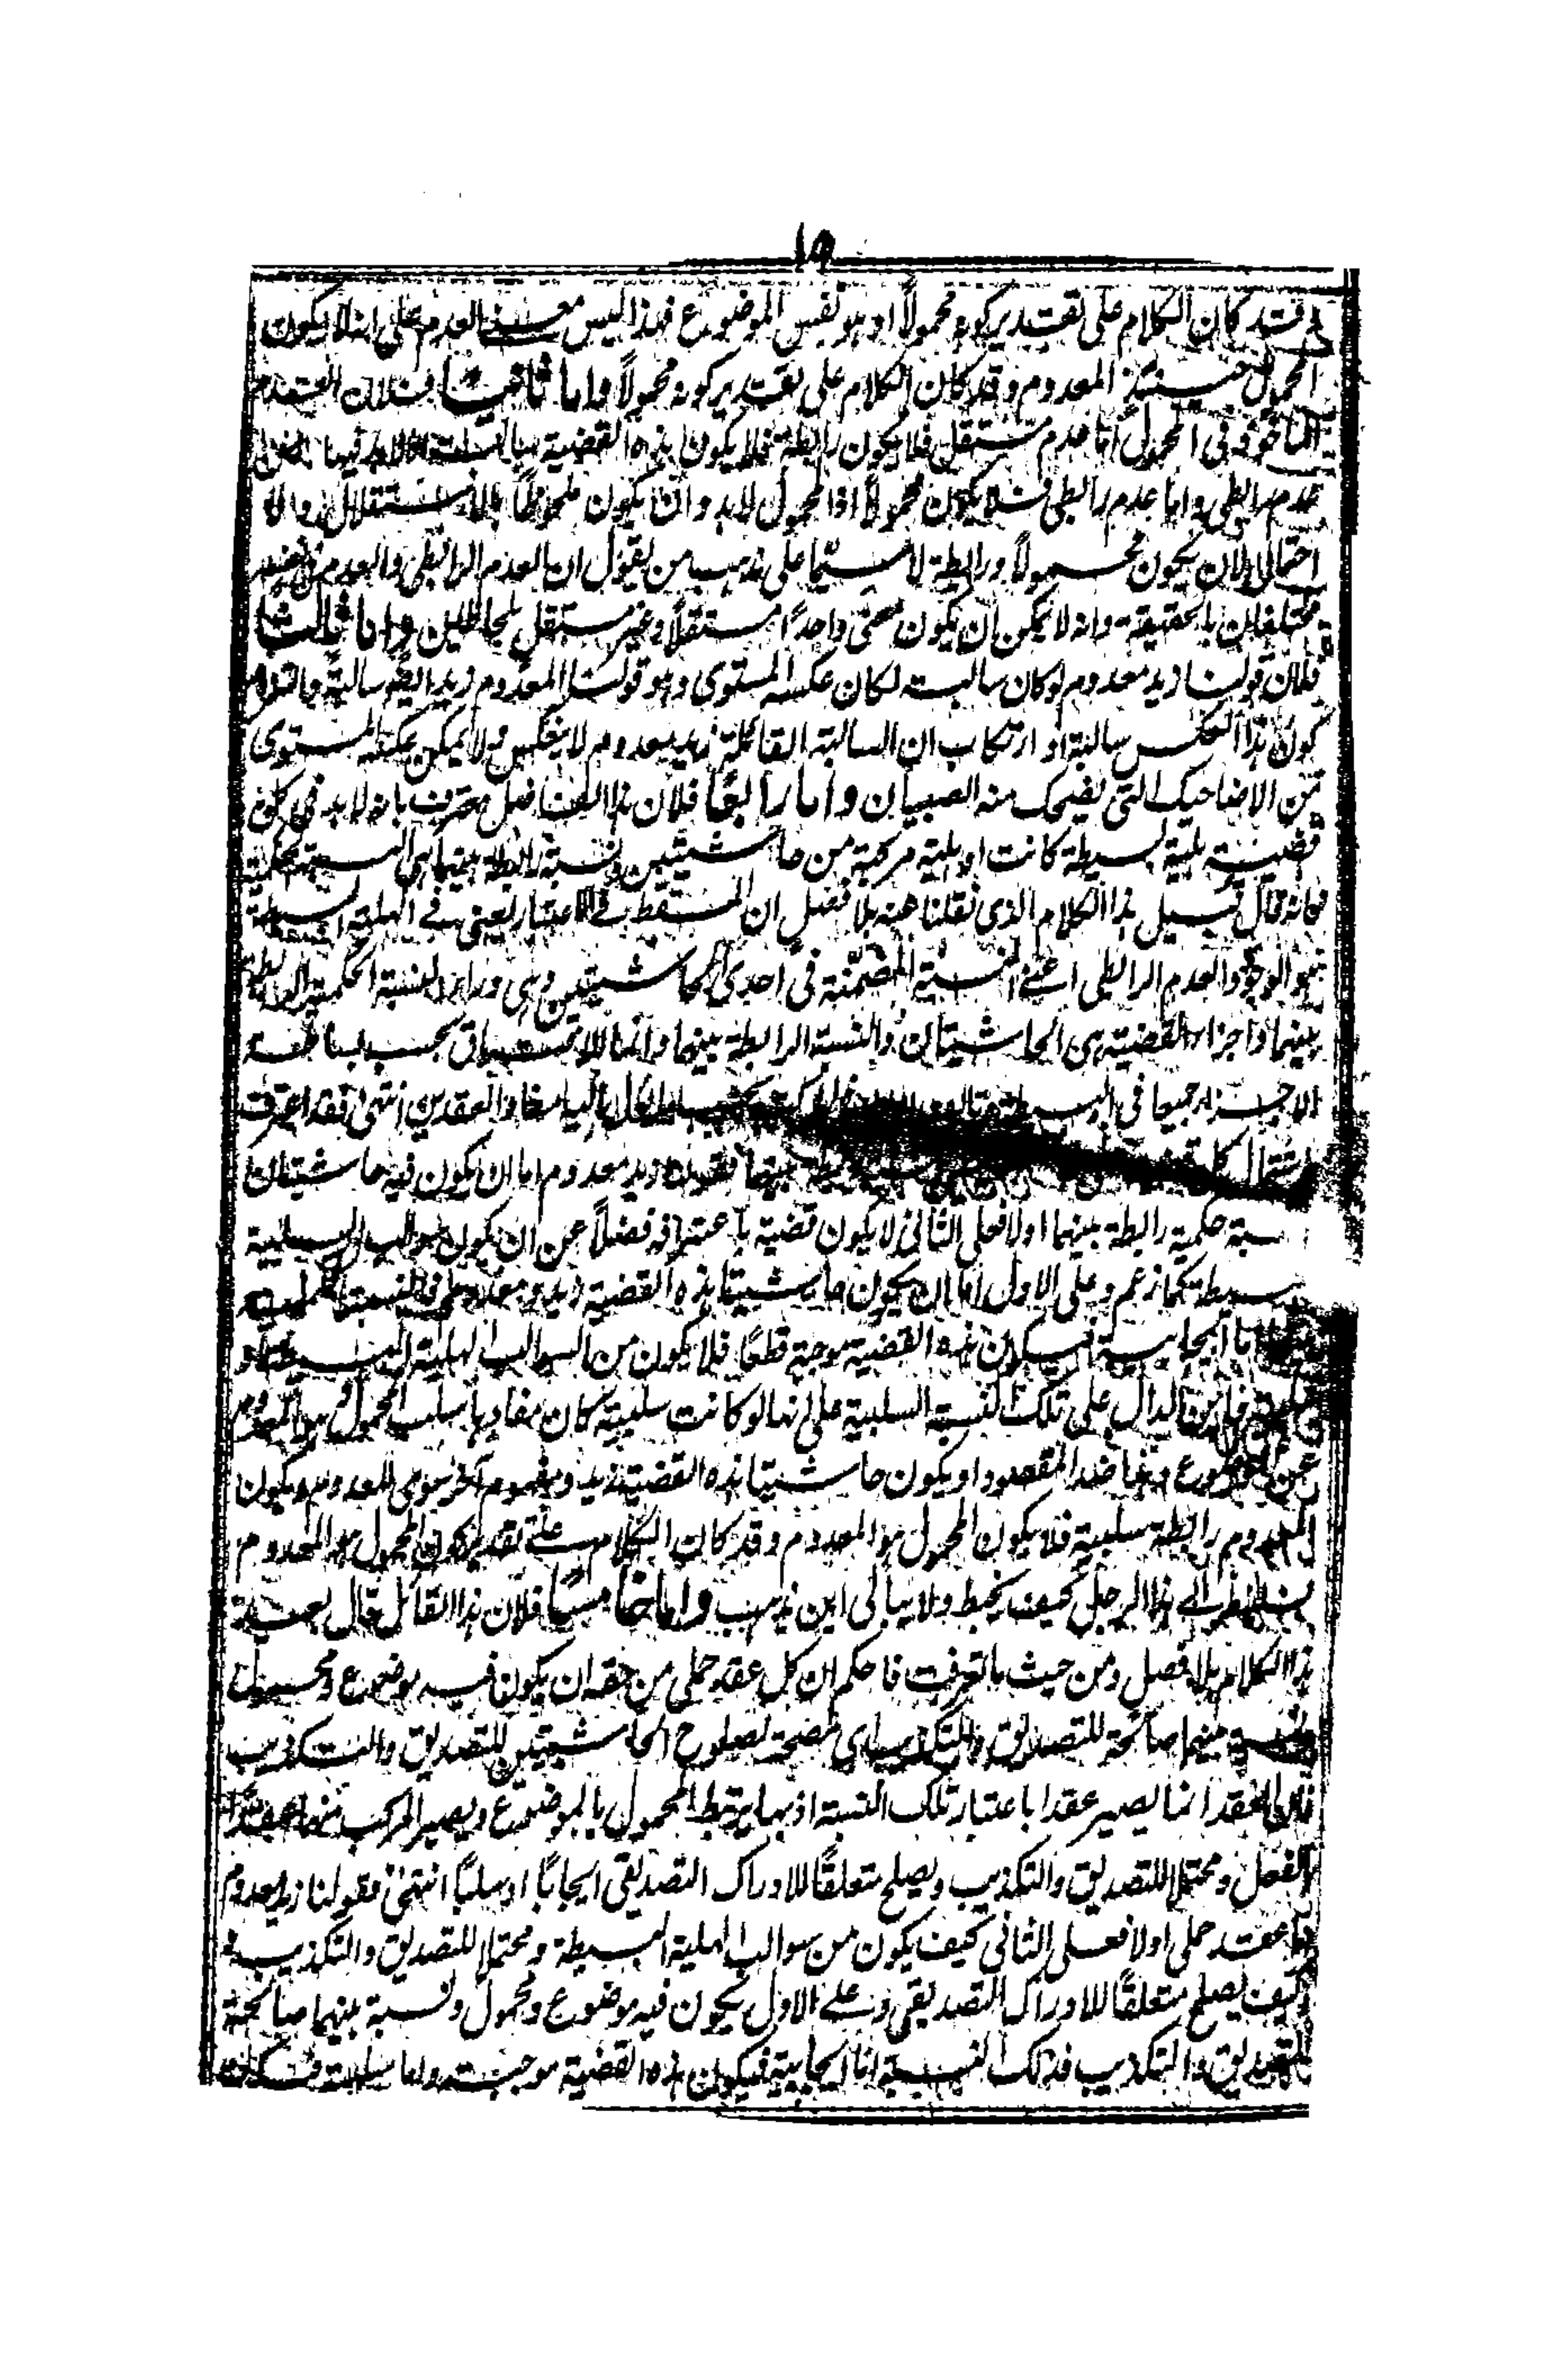 ١٥
وقد كان الكلام على تقدير كونه محمولاً او هو نفس الموضوع فهذا ليس معنى العدم على انه لا يكون
المحمول حينئذ المعدوم وقد كان الكلام على تقدير كونه محمولاً واما ثانيا فلان العدم
الماخوذ فى المحمول اما عدم مستقل فلا يكون رابطة فلا يكون هذه القضية سالبة اذ لابد فيها من
عدم رابطى واما عدم رابطى فلا يكون محمولاً اذ المحمول لابد وان يكون ملحوظاً بالاستقلال ولا
احتمال لان يكون محمولاً ورابطة لا سيما على مذهب من يقول ان العدم الرابطى والعدم فى نفسه
مختلفان بالحقيقة وانه لا يمكن ان يكون معنى واحداً مستقلاً وغير مستقل بلحاظين واما ثالثا
فلان قولنا زيد معدوم لو كان سالبة لكان عكسه المستوى وهو قولنا المعدوم زيد ايضاً سالبة والتزام
كون هذا العكس سالبة او ارتكاب ان السالبة القائلة زيد معدوم لا ينعكس ولا يمكن عكسه المستوى
من الاضاحيك التى يضحك منه الصبيان واما رابعًا فلان هذا الفاضل معترف بانه لابد فى كون
قضية هلية بسيطة كانت او هلية مركبة من حاشيتين ونسبة رابطة بينهما هى النسبة الحكمية
فانه قال قبيل هذا الكلام الذى نقلنا عنه بلا فصل ان المسقط فى الاعتبار يعنى فى الهلية البسيطة
هو الوجود والعدم الرابطى اعنى النسبة المضمنة فى احدى الحاشيتين وهى وراء النسبة الحكمية الرابطة
بينهما واجزاء القضية هى الحاشيتان والنسبة الرابطة بينهما وانما للاتصاق بحسب بساطة
الاجزاء جميعا فى البسيطة العقدين انتهى فقد اعترف
اشتمال كل بينهما فقولنا زيد معدوم اما ان يكون فيه حاشيتان
نسبة حكمية رابطة بينهما اولا فعلى الثانى لا يكون قضية باعترافه فضلاً عن ان يكون سوالب الهلية
البسيطة كما زعم وعلى الاول اما ان يكون حاشيتا هذه القضية زيد ومعدوم فالنسبة
اما ايجابية فيكون هذه القضية موجبة قطعًا فلا يكون من السوالب الهلية البسيطة او
سلبية فاين الدال على تلك النسبة السلبية على انها لو كانت سلبية كان مفادها سلب المحمول وهو المعدوم
عن الموضوع وهذا ضد المقصود او يكون حاشيتا هذه القضية زيد ومفهوم آخر سوى المعدوم ويكون
المعدوم رابطة سلبية فلا يكون المحمول هو المعدوم وقد كان الكلام على تقدير كون المحمول هو المعدوم
فلينظر الى هذا الرجل كيف يخبط ولا يبالى اين يذهب واما خامسًا فلان هذا القائل قال بعد
هذا الكلام بلا فصل ومن حيث ما تعرفت فاحكم ان كل عقد حملى من حقه ان يكون فيه موضوع ومحمول
ونسبة بينهما صالحة للتصديق والتكذيب اى مصححة لصلوح الحاشيتين للتصديق والتكذيب
فان العقد انما يصير عقدا باعتبار تلك النسبة اذ بها يرتبط المحمول بالموضوع ويصير المركب منهما عقداً
بالفعل ومحتملا للتصديق والتكذيب ويصلح متعلقًا للادراك التصديقى ايجابًا او سلبًا انتهى فقولنا زيد معدوم
اما عقد حملى اولا فعلى الثانى كيف يكون من سوالب الهلية البسيطة ومحتملا للتصديق والتكذيب و
كيف يصلح متعلقًا للادراك التصديقى وعلى الاول يكون فيه موضوع ومحمول ونسبة بينهما صالحة
للتصديق والتكذيب فتلك النسبة اما ايجابية فيكون هذه القضية موجبة واما سلبية فتكون